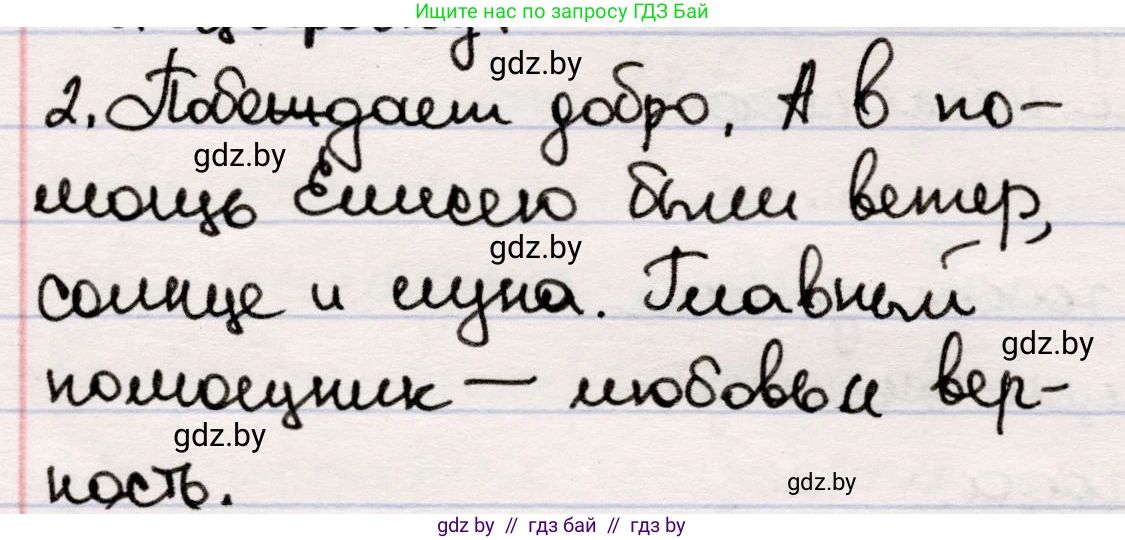 Ищите нас по запросу ГДЗ Бай
gdz.by
2. Побеждает добро. А в по-
gdz.by
мощь Елисею были ветер,
gdz.by
солнце и луна. Главный
gdz.by
помощник — любовь и вер-
gdz.by
ность.
gdz.by
gdz by // гдз бай // гдз by